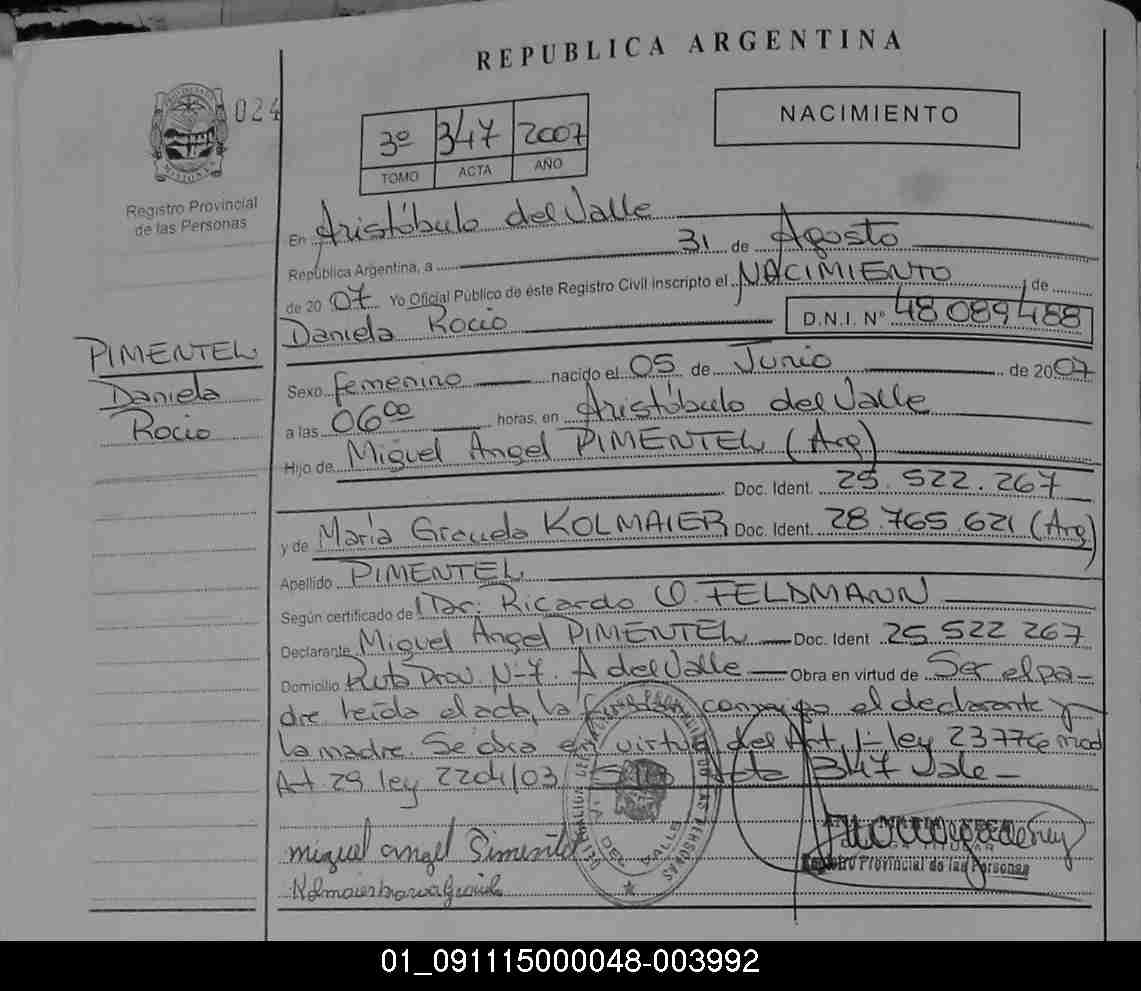 REPUBLICA ARGENTINA
024
NACIMIENTO
3º 347 2007
TOMO ACTA AÑO
Registro Provincial
de las Personas
En Aristóbulo del Valle
República Argentina, a 31 de Agosto
de 2007 Yo Oficial Público de éste Registro Civil inscripto el NACIMIENTO de
Daniela Rocio D.N.I. Nº 48 089 488
PIMENTEL
Daniela
Rocio
Sexo femenino nacido el 05 de Junio de 2007
a las 06 00 horas, en Aristóbulo del Valle
Hijo de Miguel Angel PIMENTEL (Arg)
Doc. Ident. 25.522.267
y de María Graciela KOLMAIER Doc. Ident. 28.765.621 (Arg)
Apellido PIMENTEL
Según certificado de Dr. Ricardo O. FELDMANN
Declarante Miguel Angel PIMENTEL Doc. Ident. 25 522 267
Domicilio Ruta Prov. Nº 7. A del Valle Obra en virtud de Ser el pa-
dre leída el acta, la firman conmigo el declarante y
la madre. Se en virtud del Art. 1º ley 23776 mod
Art. 29 ley 22041/03 Acta 347 Vale -
miguel angel Pimentel
DEL VALLE
Registro Provincial de las Personas
01_091115000048-003992